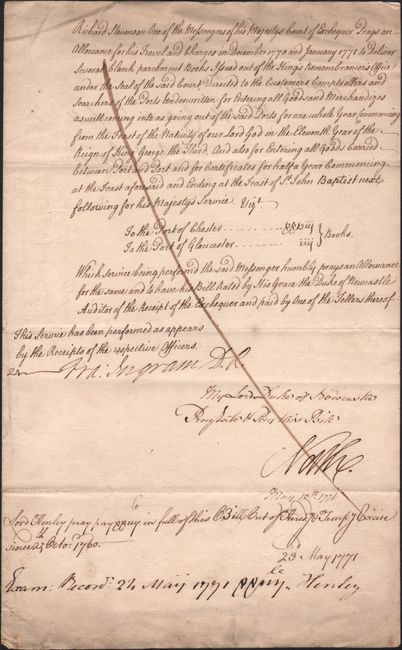 Richard Stevenson One of the Messengers of his Majestys Court of Exchequer Prays an
Allowance for his Travel and Charges in December 1770 and January 1771 to Deliver
Several blank parchment Books Issued out of the Kings Remembrancers Office
under the Seal of the said Court Directed to the Customers Comptrollers and
Searchers of the Ports underwritten for Entering all Goods and Merchandizes
as well coming into as going out of the said Ports for one whole Year Commencing
from the Feast of the Nativity of our Lord God in the Eleventh Year of the
Reign of King George the Third. And also for Entering all Goods Carried
between Port and Port and for Certificates for half a Year Commencing
at the Feast aforesaid and Ending at the Feast of St. John Baptist next
following for his Majestys Service. Vizt.
To the Port of Chester
To the Port of Gloucester iiij Books.
Which Service being performed the said Messenger humbly prays an Allowance
for the same and to have his Bill Rated by His Grace the Duke of Newcastle
Auditor of the Receipt of the Exchequer and paid by One of the Tellers thereof.
This Service has been performed as appears
by the Receipts of the respective Officers.
Ingram D.R.
My Lord Duke of Newcastle
Pray
North.
May 1771
Lord Henley pray pay in full of this Bill Out of Excise
since 25th Octor. 1760.
23d May 1771
Exam: Record: 24 Maij 1771 Henley